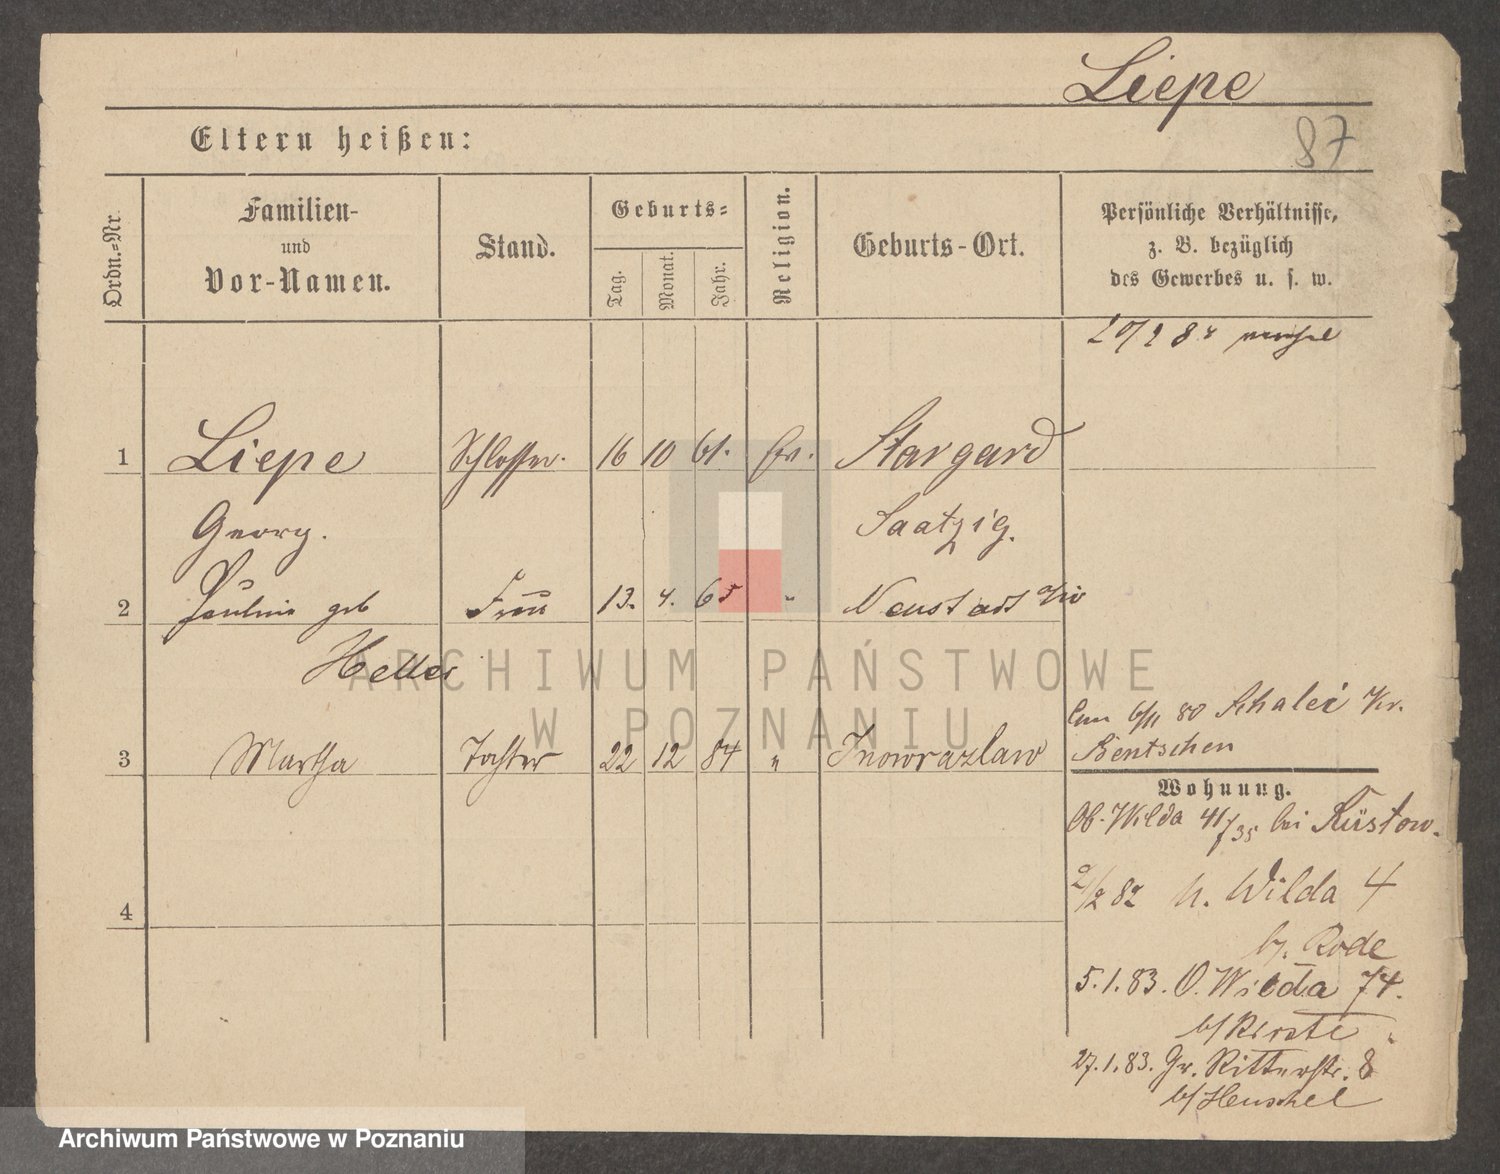 Liepe
87
Eltern heißen:
Ordn.=Nr.
Familien-
und
Vor-Namen.
Stand.
Geburts=
Tag.
Monat.
Jahr.
Religion.
Geburts-Ort.
Persönliche Verhältnisse,
z. B. bezüglich
des Gewerbes u. s. w.
1 Liepe Schlosser. 16 10 61. ev. Stargard
Georg. Saatzig.
2 Pauline geb Frau 13. 4. 65 " Neustadt
Heller
80 Schalei Kr.
Bentschen
3 Martha Tochter 22 12 84 " Inowrazlaw
Wohnung.
Ob. Wilda 41/35 bei Küstow.
2/2 82 U. Wilda 4
b/. Rode
4
5.1.83. O. Wilda 74.
b/
27.1.83. Gr. Ritterstr. 8
b/ Henschel
ARCHIWUM PAŃSTWOWE
W POZNANIU
Archiwum Państwowe w Poznaniu